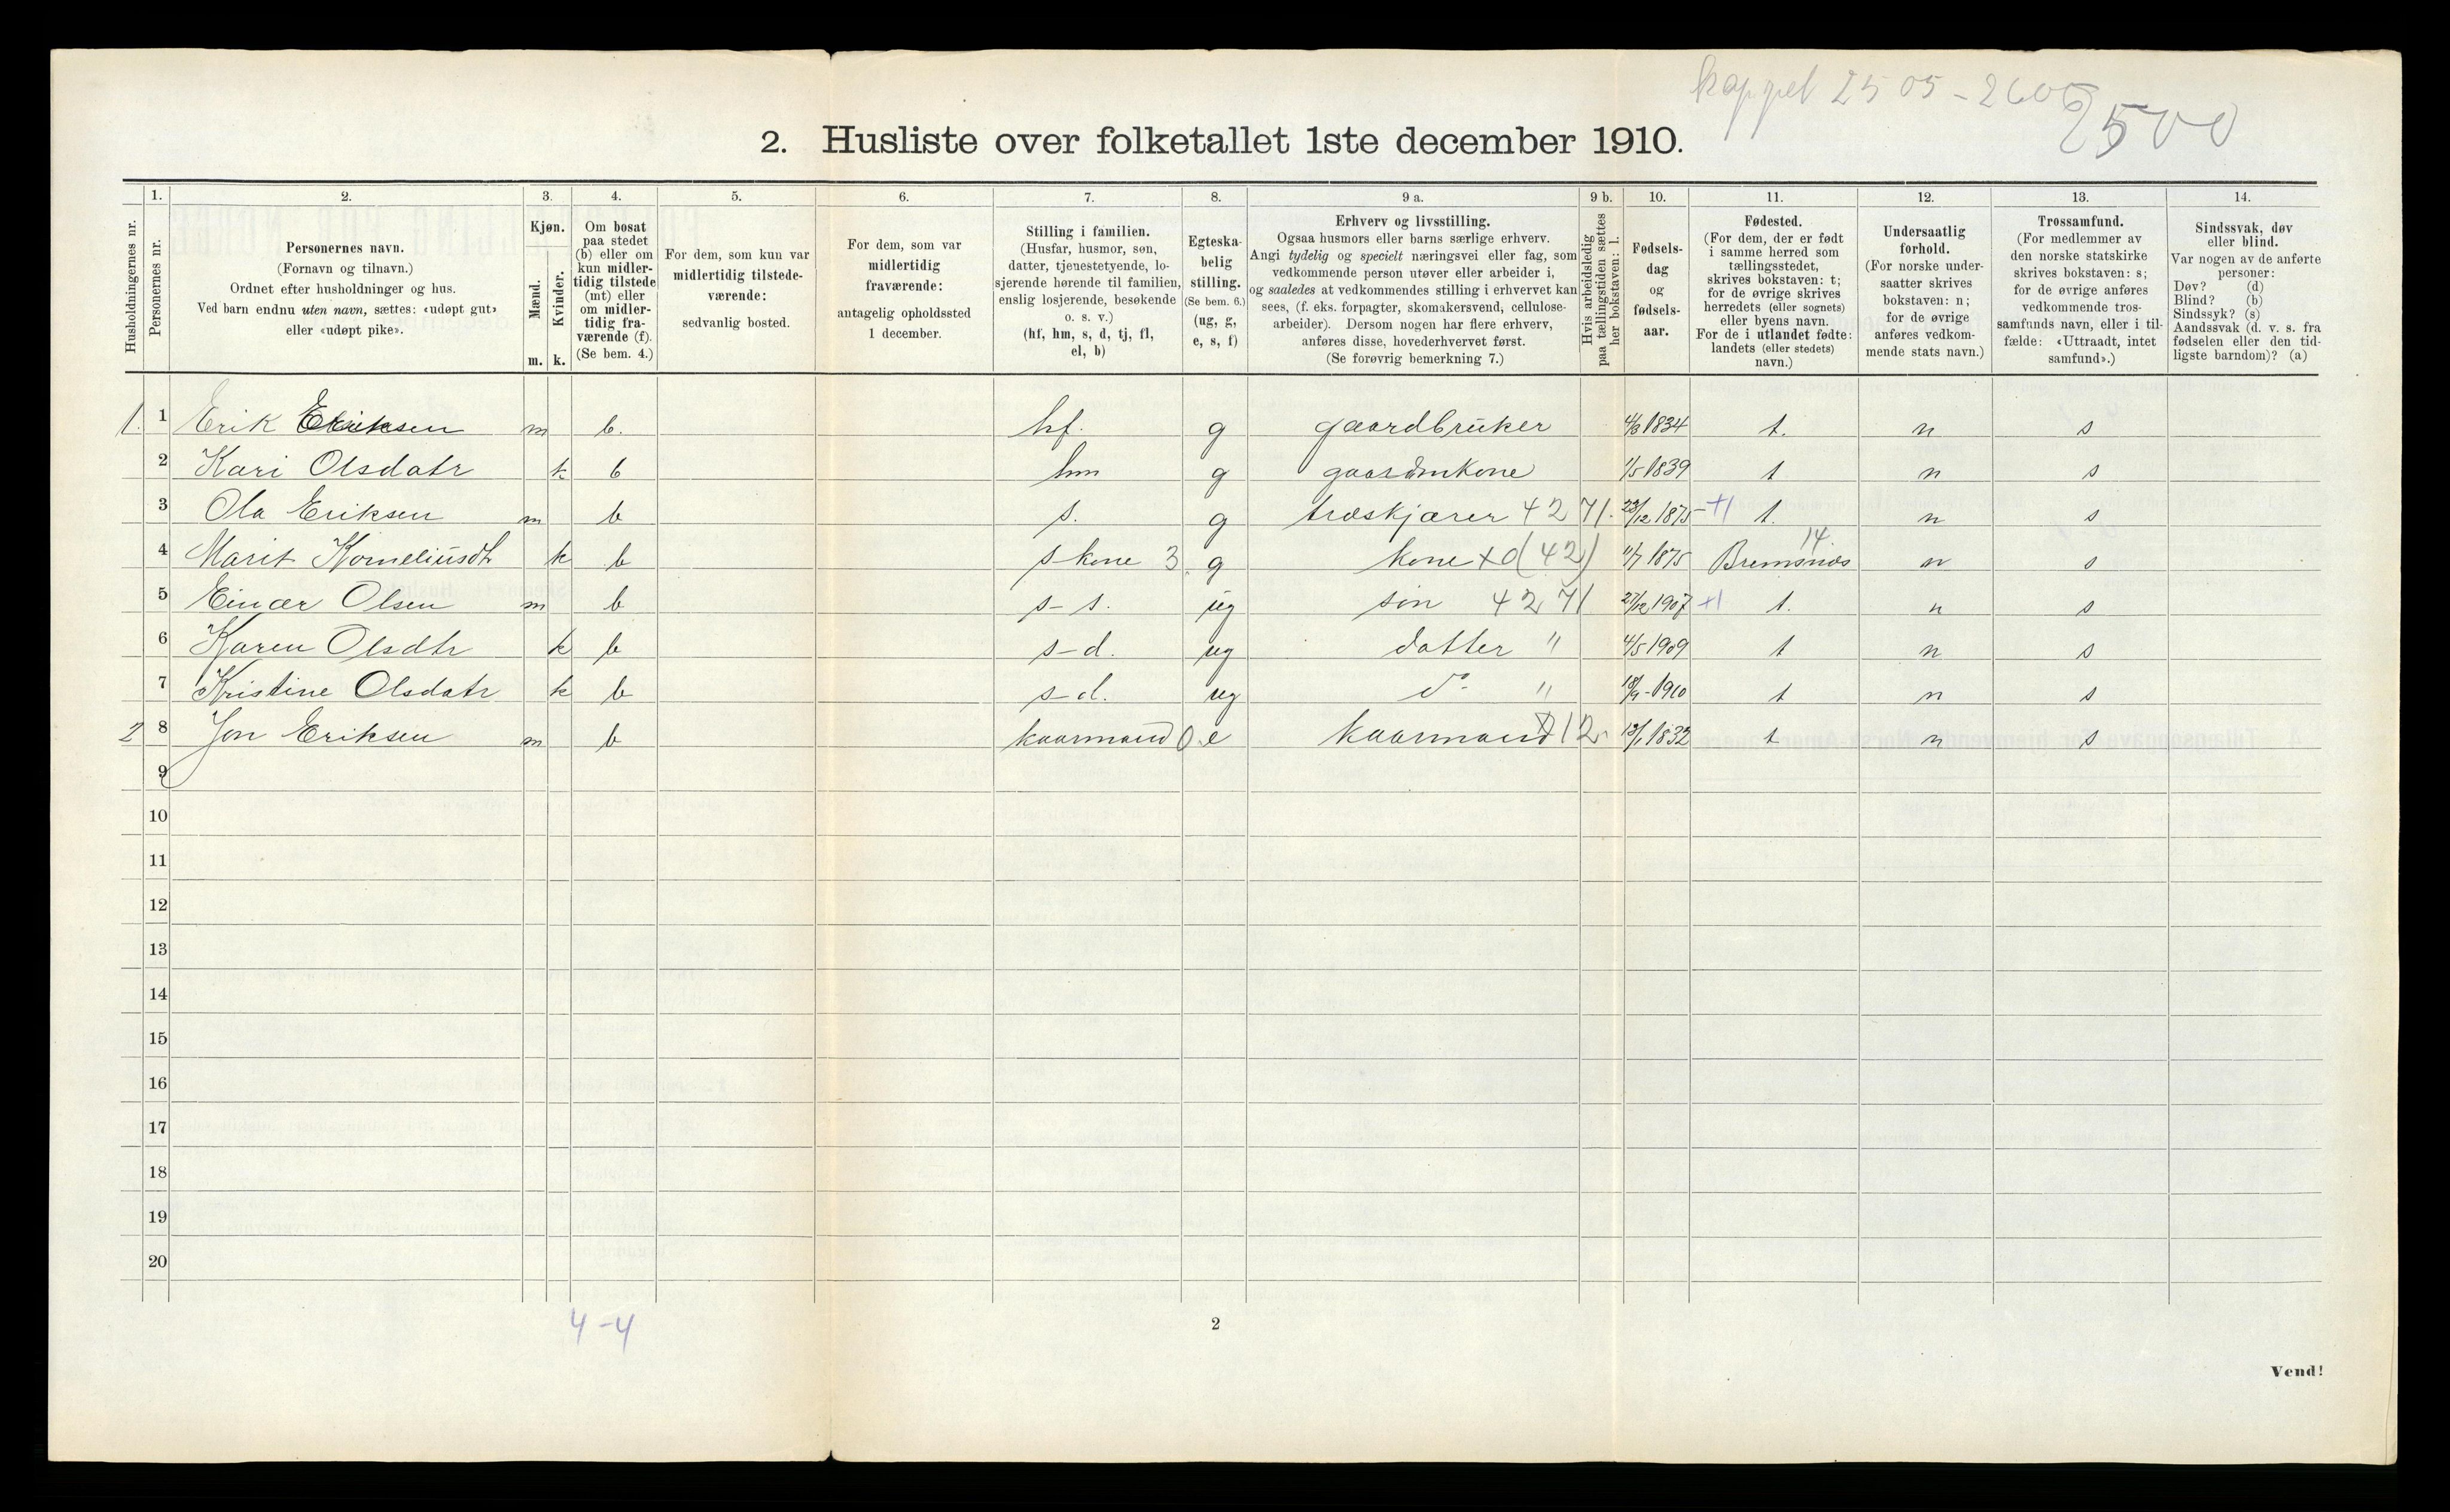 koppet 2505-260
2500
2. Husliste over folketallet 1ste december 1910.
Husholdningernes nr.
1.
Personernes nr.
2.
Personernes navn.
(Fornavn og tilnavn.)
Ordnet efter husholdninger og hus.
Ved barn endnu uten navn, sættes: «udøpt gut»
eller «udøpt pike».
3.
Kjøn.
Mænd.
m.
Kvinder.
k.
4.
Om bosat
paa stedet
(b) eller om
kun midler-
tidig tilstede
(mt) eller
om midler-
tidig fra-
værende (f).
(Se bem. 4.)
5.
For dem, som kun var
midlertidig tilstede-
værende:
sedvanlig bosted.
6.
For dem, som var
midlertidig
fraværende:
antagelig opholdssted
1 december.
7.
Stilling i familien.
(Husfar, husmor, søn,
datter, tjenestetyende, lo-
sjerende hørende til familien,
enslig losjerende, besøkende
o. s. v.)
(hf, hm, s, d, tj, fl,
el, b)
8.
Egteska-
belig
stilling.
(Se bem. 6.)
(ug, g,
e, s, f)
9 a.
Erhverv og livsstilling.
Ogsaa husmors eller barns særlige erhverv.
Angi tydelig og specielt næringsvei eller fag, som
vedkommende person utøver eller arbeider i,
og saaledes at vedkommendes stilling i erhvervet kan
sees, (f. eks. forpagter, skomakersvend, cellulose-
arbeider). Dersom nogen har flere erhverv,
anføres disse, hovederhvervet først.
(Se forøvrig bemerkning 7.)
9 b.
Hvis arbeidsledig
paa tællingstiden sættes
her bokstaven: l.
10.
Fødsels-
dag
og
fødsels-
aar.
11.
Fødested.
(For dem, der er født
i samme herred som
tællingsstedet,
skrives bokstaven: t;
for de øvrige skrives
herredets (eller sognets)
eller byens navn.
For de i utlandet fødte:
landets (eller stedets)
navn.)
12.
Undersaatlig
forhold.
(For norske under-
saatter skrives
bokstaven: n;
for de øvrige
anføres vedkom-
mende stats navn.)
13.
Trossamfund.
(For medlemmer av
den norske statskirke
skrives bokstaven: s;
for de øvrige anføres
vedkommende tros-
samfunds navn, eller i til-
fælde: «Uttraadt, intet
samfund».)
14.
Sindssvak, døv
eller blind.
Var nogen av de anførte
personer:
Døv? (d)
Blind? (b)
Sindssyk? (s)
Aandssvak (d. v. s. fra
fødselen eller den tid-
ligste barndom)? (a)
1. 1 Erik Eriksen m b. hf. g gaardbruker 1834 t. n s
2 Kari Olsdatr k b hm g gaardmkone 1/5 1839 t n s
3 Ola Eriksen m b s. g træskjærer 42 71. 23/12 1875 +1 t. n s
4 Marit Korneliusdt k b s-kone 3. g kone +0(42) 11/7 1875 Bremsnes 14. n s
5 Einar Olsen m b s-s. ug søn 42 71 27/12 1907 +1 t. n s
6 Karen Olsdtr k b s-d. ug datter " 4/5 1909 t n s
7 Kristine Olsdatr k b s-d. ug do " 18/9-1910 t n s
2 8 Jon Eriksen m b kaarmand 0. e kaarmand 12. 13/1 1832 t n s
9
10
11
12
13
14
15
16
17
18
19
20
4-4
2
Vend!